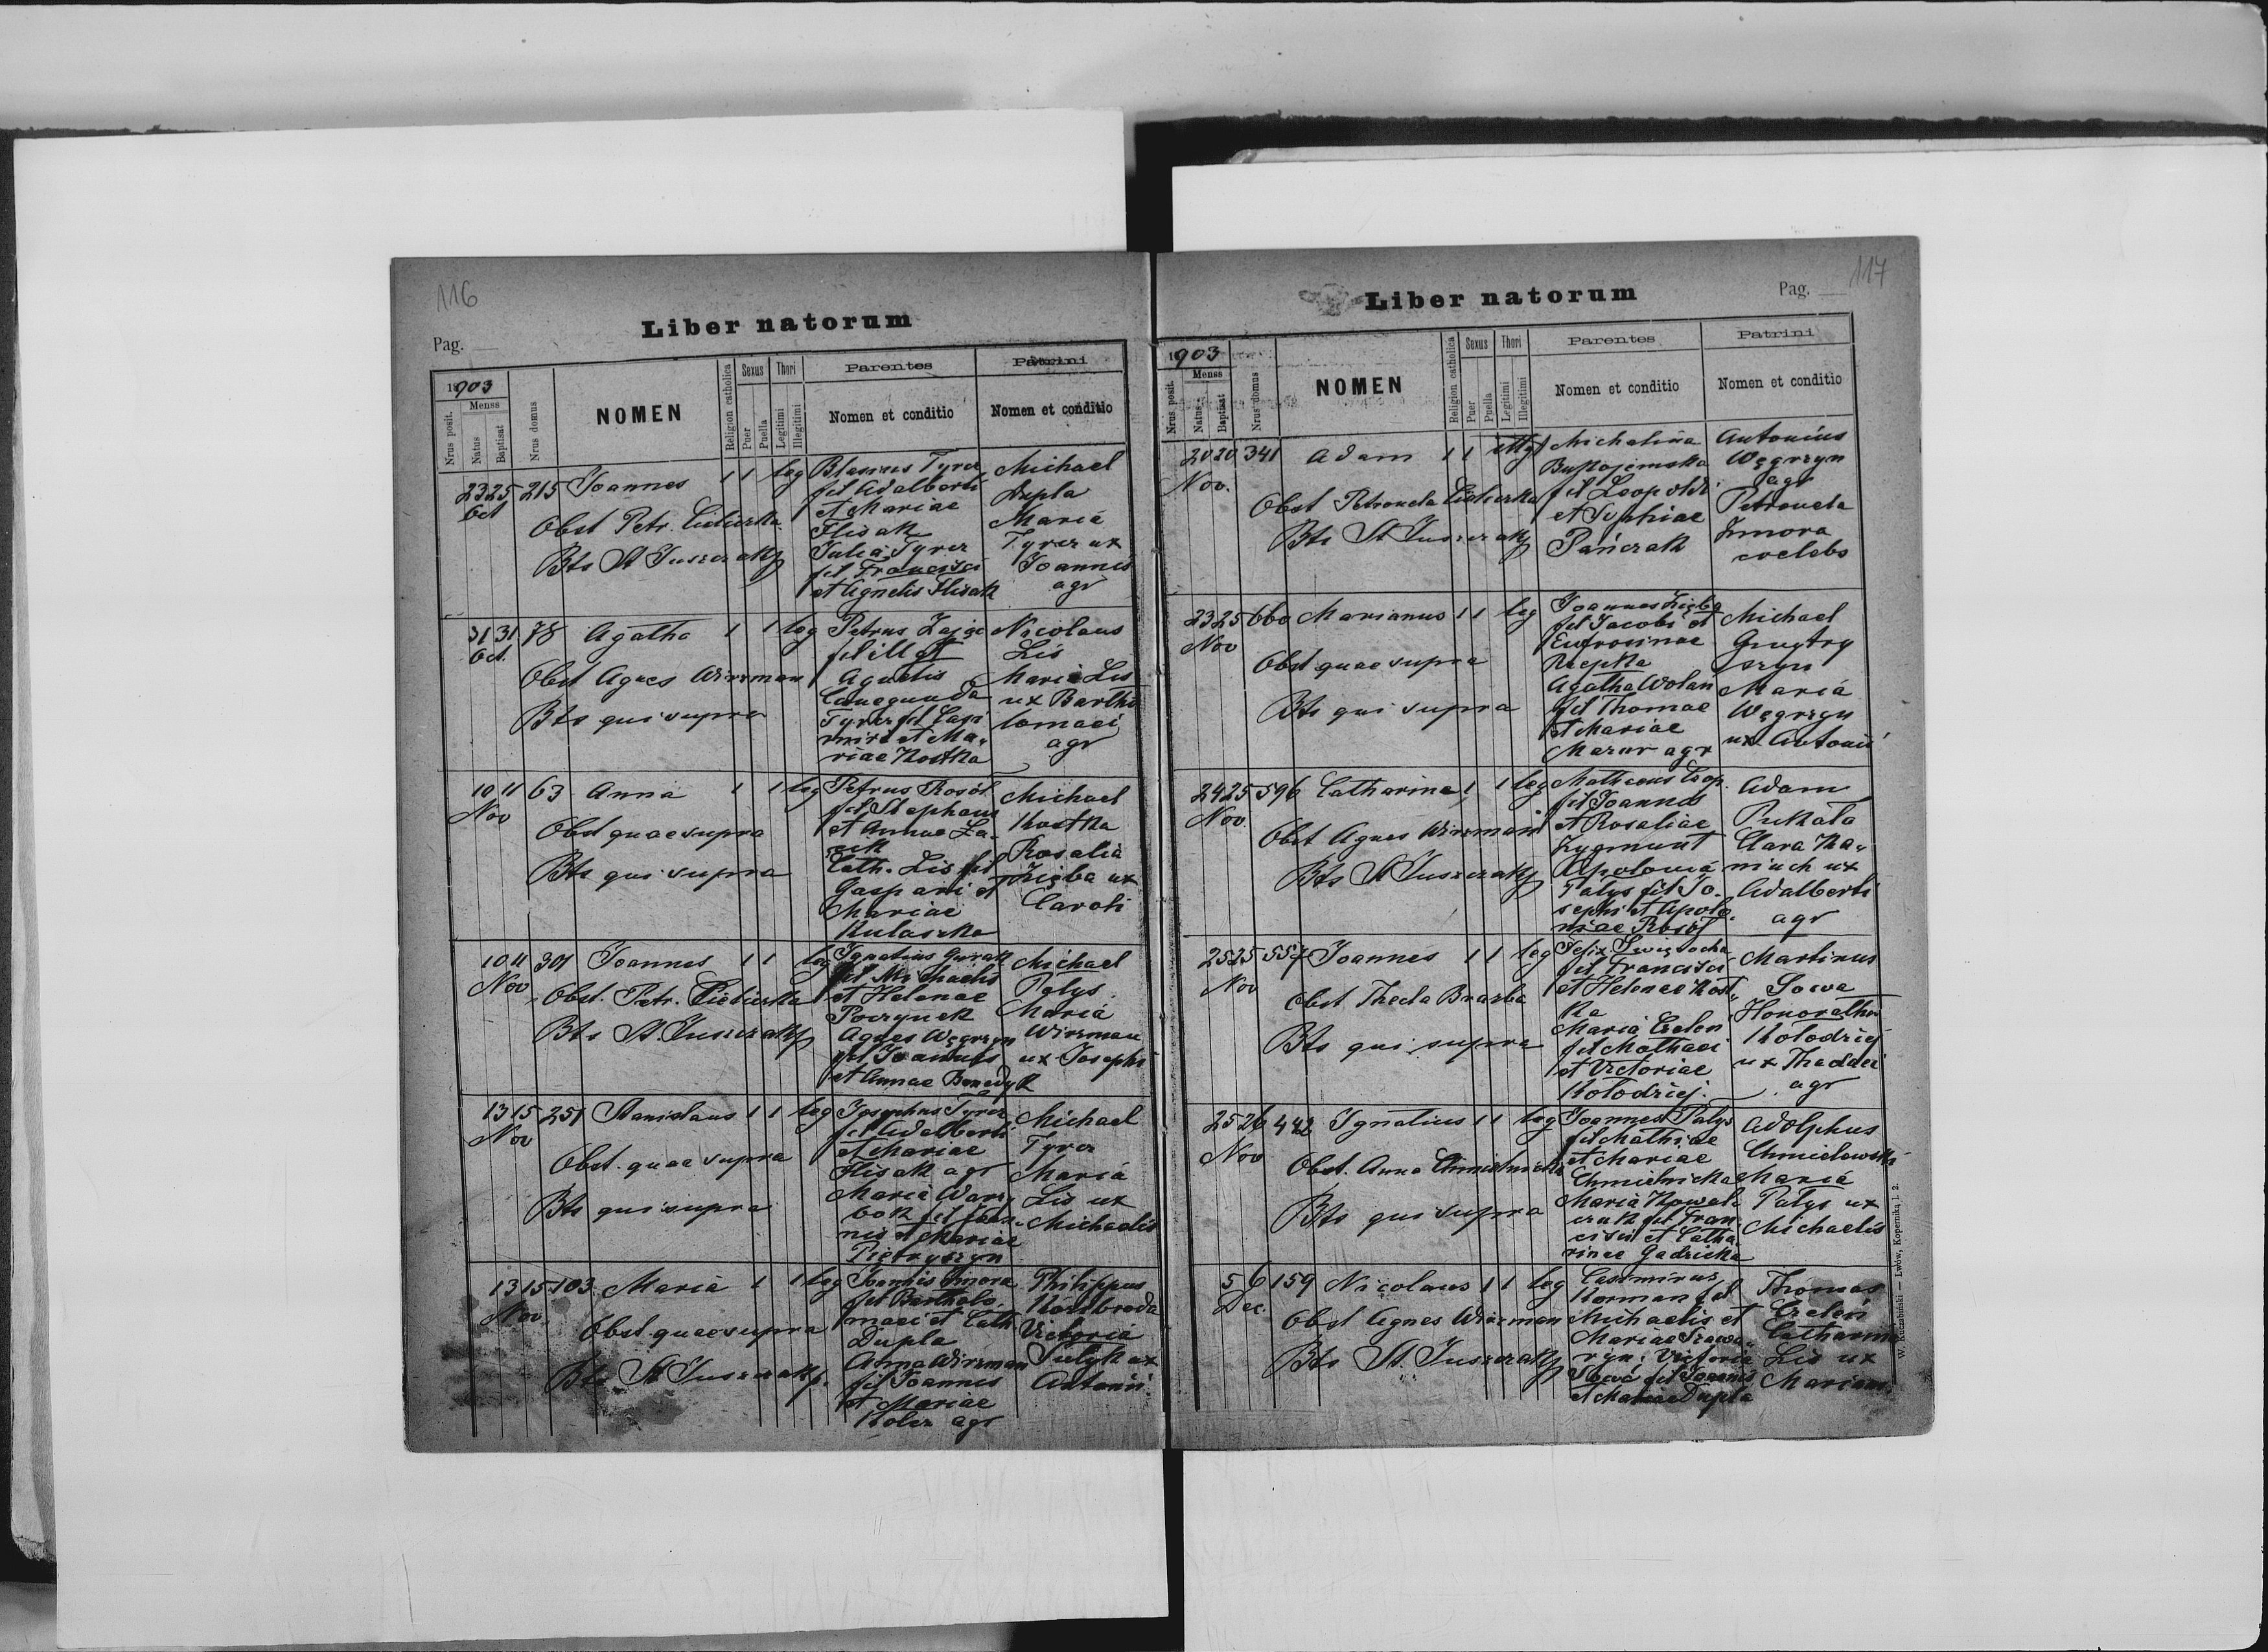 116
Pag.
Liber natorum
1903
Nrus posit.
Menss
Natus
Baptisat
Nrus domus
NOMEN
Religion catholica
Sexus
Puer
Puella
Thori
Legitimi
Illegitimi
Parentes
Nomen et conditio
Patrini
Nomen et conditio
23 25 215 Joannes 1 1 leg
Oct
Obst Petr.
Bts St Juszczak
Blasius Tyrcz
fil Adalberti
et Mariae
Flisak
Julia Tyrcz
fil Francisci
et Agnetis Flisak
Michael
Dupla
Maria
Tyrcz ux
Joannis
agr
31 31 78 Agatha 1 1 leg
Oct.
Obst Agnes Wirzman
Bts qui supra
Petrus Zając
fil ill et
Agnetis
Cunegunda
Tyrcz fil Casi
miri et Ma„
riae Kostka
Nicolaus
Lis
Maria Lis
ux Bartho
lomaei
agr
10 11 63 Anna 1 1 leg
Nov
Obst quae supra
Bts qui supra
Petrus Rosół
fil Stephani
et Annae
Cath. Lis fil
Gaspari et
Mariae
Kulaszka
Michael
Kostka
Rosalia
Zięba ux
Caroli
10 11 301 Joannes 1 1 leg
Nov
Obst. Petr.
Bts St. Juszczak
Ignatius
fil Michaelis
et Helenae
Poczynek
Agnes Węgrzyn
fil Joannis
et Annae Benedyk
Michael
Patys
Maria
Wirzman
ux Josephi
13 15 251 Stanislaus 1 1 leg
Nov
Obst. quae supra
Bts qui supra
Josephus Tyrcz
fil Adalberti
et Mariae
Flisak agr
Maria Warz
bok fil Joan„
nis et Mariae
Pietryszyn
Michael
Tyrcz
Maria
Lis ux
Michaelis
13 15 103 Maria 1 1 leg
Nov.
Obst quae supra
Bts St Juszczak
Joannis Zmora
fil Bartholo
maei et Cath
Dupla
Anna Wirzman
fil Joannis
et Mariae
Kolcz agr
Philippus
Victoria
Sulyk ux
Antonii.
117
Pag.
Liber natorum
1903
Nrus posit.
Menss
Natus
Baptisat
Nrus domus
NOMEN
Religion catholica
Sexus
Puer
Puella
Thori
Legitimi
Illegitimi
Parentes
Nomen et conditio
Patrini
Nomen et conditio
20 20 341 Adam 1 1
Nov.
Obst Petronela
Bts St Juszczak
Michalina
fil Leopoldi
et Sophiae
Pańczak
Antonius
Węgrzyn
agr
Petronela
Zmora
coelebs
23 25 660 Marianus 1 1 leg
Nov
Obst quae supra
Bts qui supra
Joannes Zięba
fil Jacobi et
Eufrosinae
Rzepka
Agatha Wolan
fil Thomae
et Mariae
Mazur agr
Michael
Maria
Węgrzyn
ux Antonii
24 25 596 Catharina 1 1 leg
Nov.
Obst Agnes Wirzman
Bts St Juszczak
Mathaeus Czop
fil Joannis
et Rosaliae
Zygmunt
Apolonia
Patys fil Jo„
sephi et Apolo„
niae Rosół
Adam
Pukała
Clara Ka„
niuch ux
Adalberti
agr
25 25 557 Joannes 1 1 leg
Nov
Obst Thecla
Bts qui supra
Felix Świętocha
fil Francisci
et Helenae Kost„
ka
Maria Czelen
fil Mathaei
et Victoriae
Kołodziej.
Martinus
Sowa
Honoratha
Kołodziej
ux Thaddei
agr
25 26 442 Ignatius 1 1 leg
Nov
Obst. Anna Chmielnicka
Bts qui supra
Joannes Patys
fil Mathiae
et Mariae
Chmielnicka
Maria Kowal
czuk fil Fran„
cisci et Catha
rinae Gadzicka
Adolphus
Chmielowski
Maria
Patys ux
Michaelis
5 6 159 Nicolaus 1 1 leg
Dec.
Obst Agnes Wirzman
Bts St. Juszczak
Casimirus
Korman fil
Michaelis et
Mariae
Victoria
Sowa fil Joannis
et Mariae Dupla
Thomas
Czeleń
Catharina
Lis ux
Mariani
W. Kuczabiński — Lwów, Kopernika l. 2.